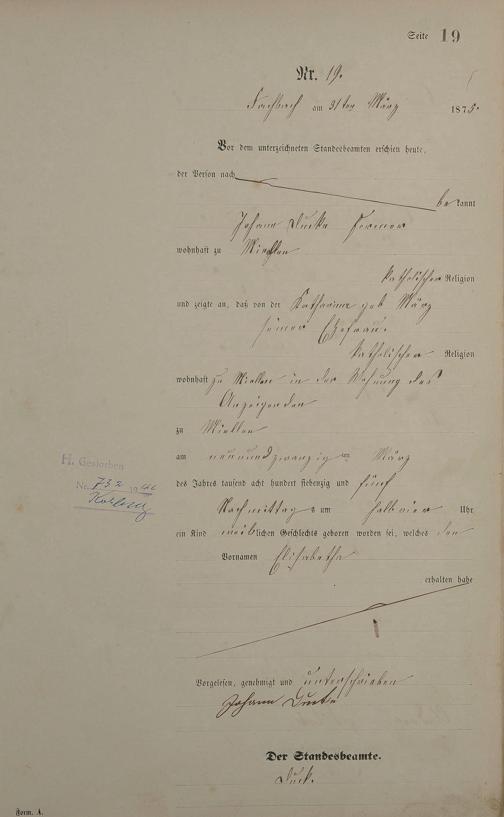 Seite 19
Nr. 19.
Fachbach am 31ten März 1875.
Vor dem unterzeichneten Standesbeamten erschien heute,
der Person nach
bekannt
Johann
wohnhaft zu Miellen
katholischer Religion
und zeigte an, daß von der Katharine geb März
seiner Ehefrau.
katholischer Religion
wohnhaft zu Miellen in der Wohnung des
Anzeigenden
zu Miellen
am neunundzwanzigten März
des Jahres tausend acht hundert siebenzig und fünf
Nachmittags um halb vier Uhr
ein Kind weiblichen Geschlechts geboren worden sei, welches den
Vornamen Elisabetha
erhalten habe
Vorgelesen, genehmigt und unterschrieben
Johann
Der Standesbeamte.
H. Gestorben
Nr. 732 19
Koblenz
Form. A.